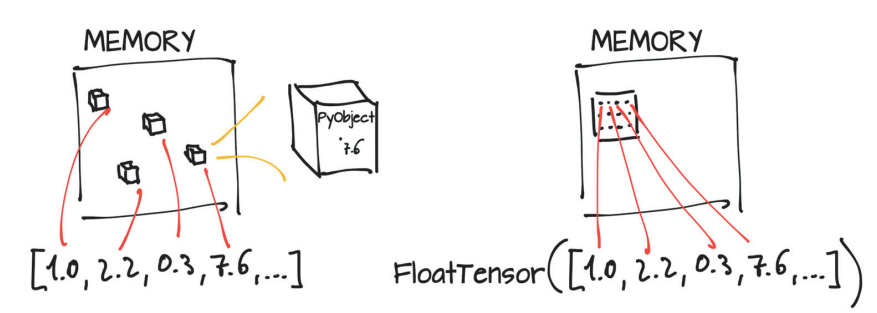 MEMORY
PyObject
7.6
[1.0, 2.2, 0.3, 7.6, ...]
MEMORY
FloatTensor([1.0, 2.2, 0.3, 7.6, ...])